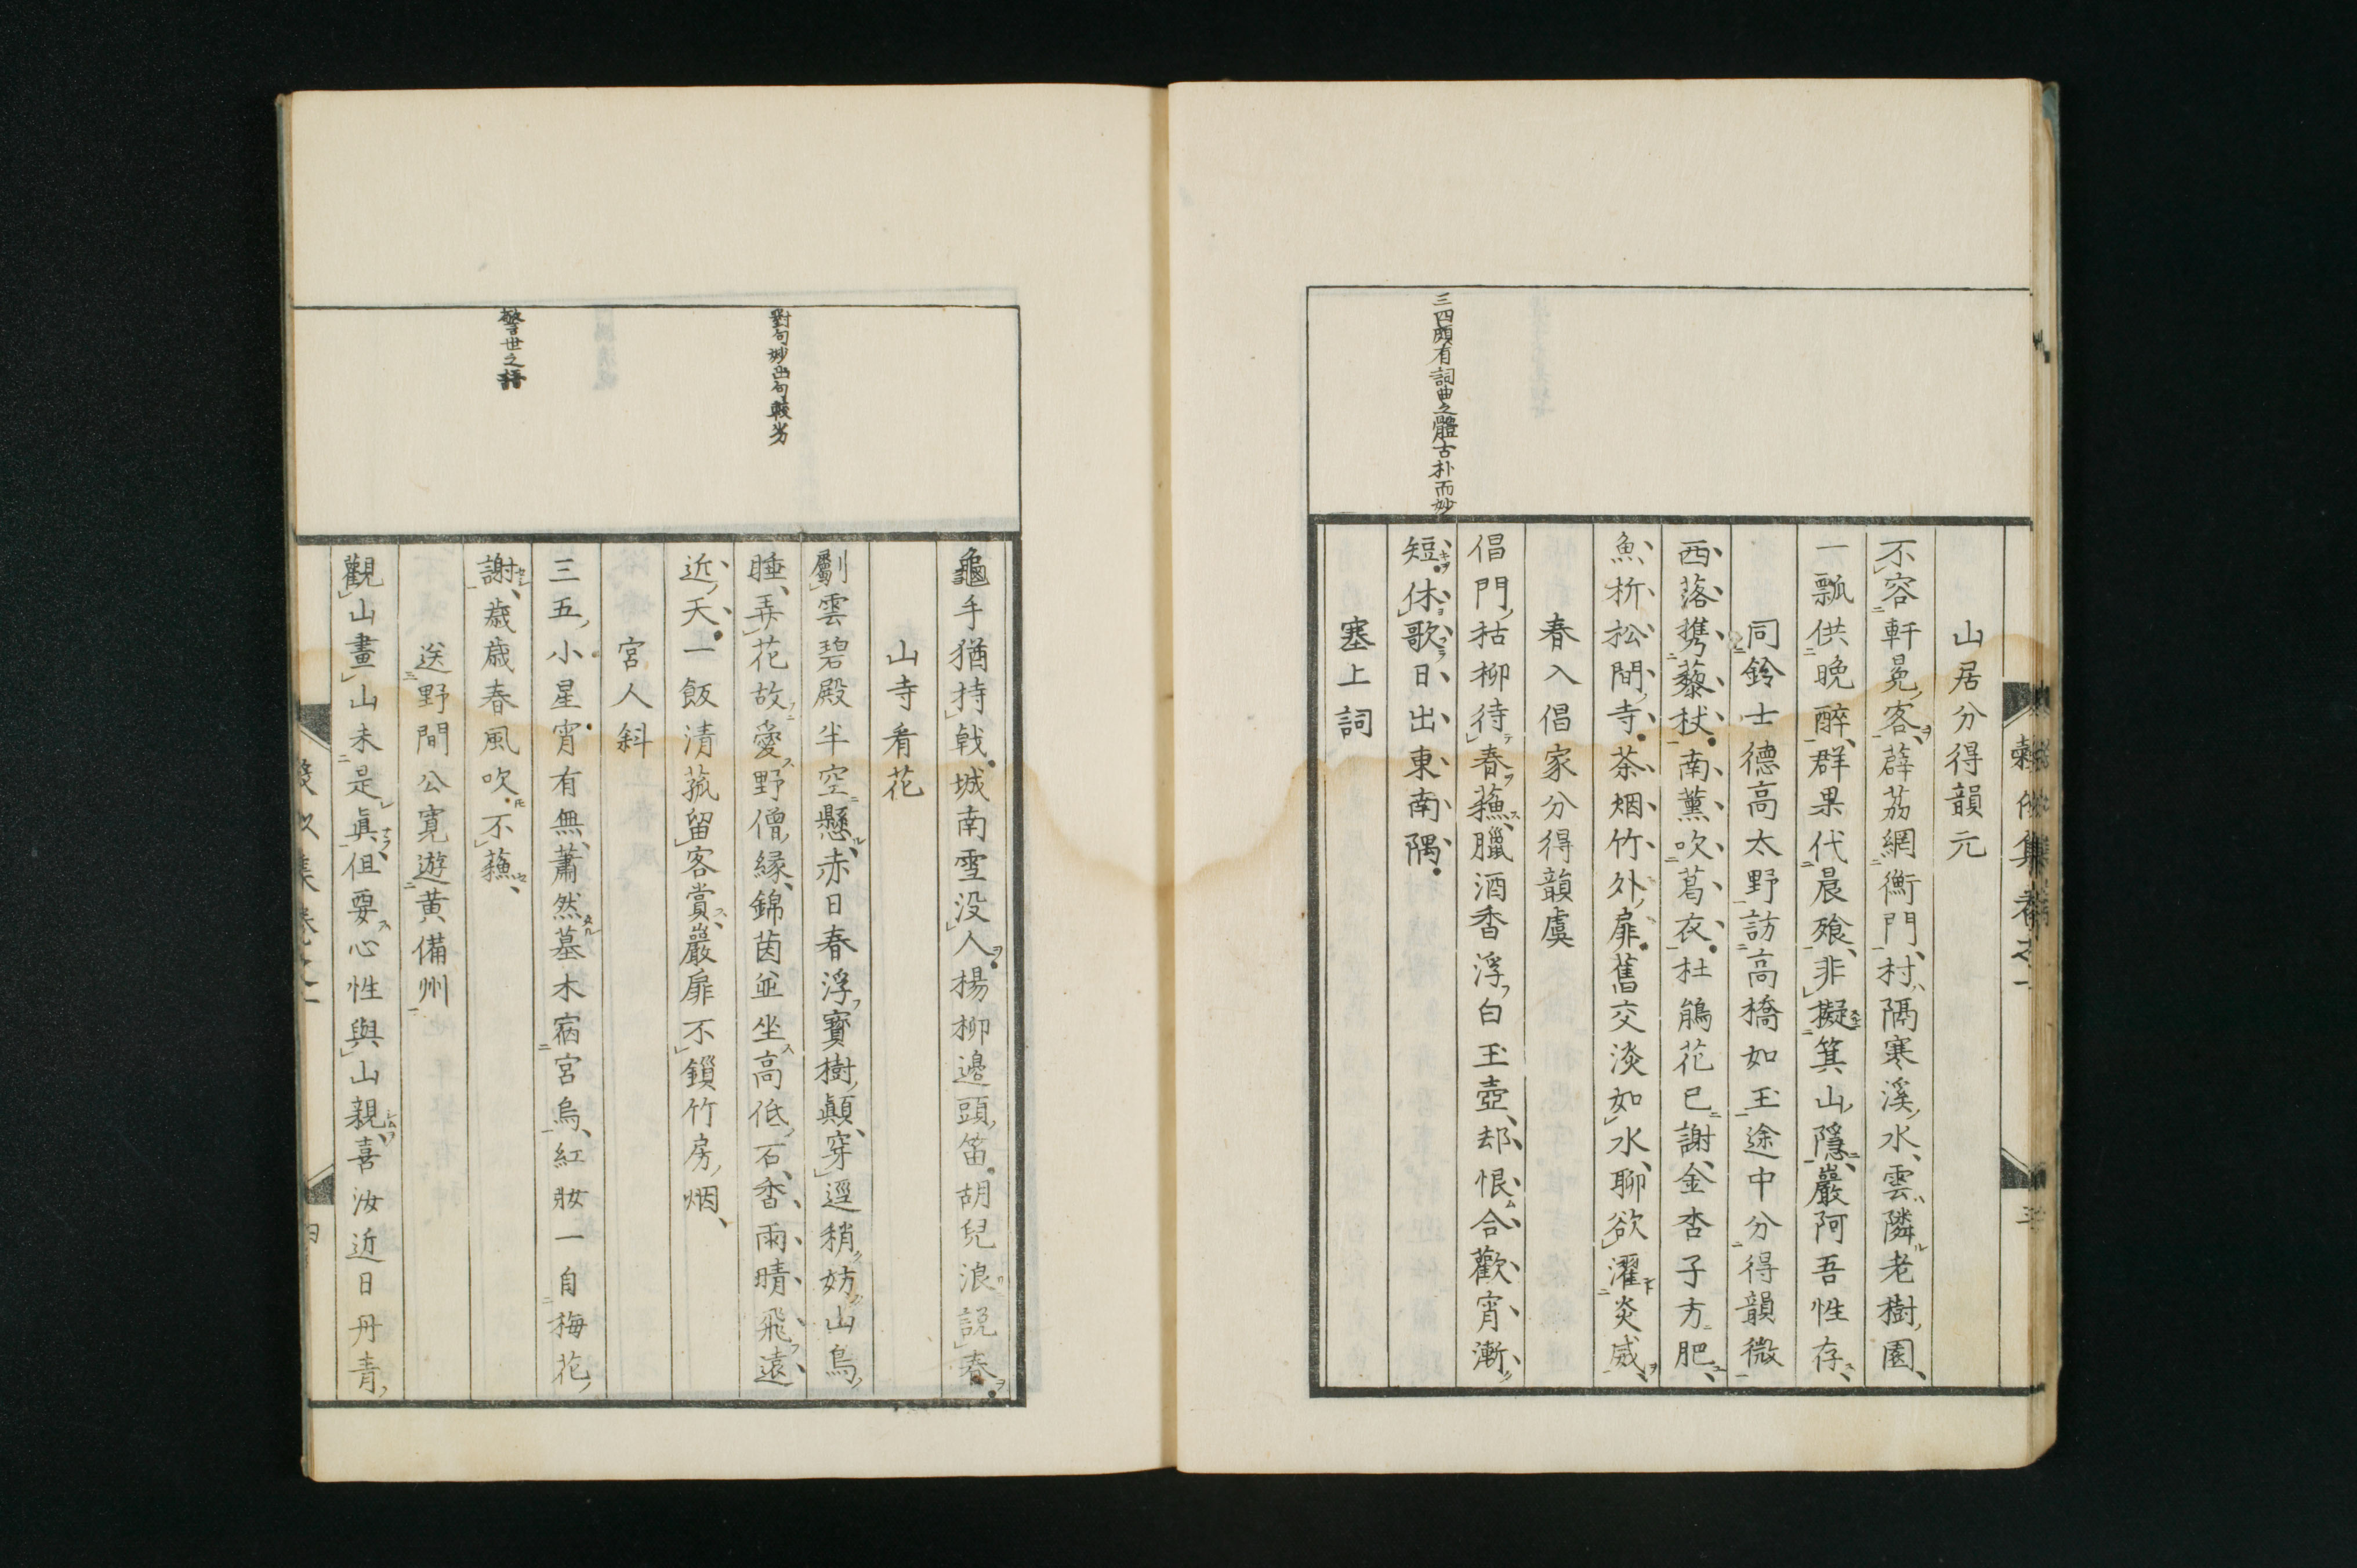 山居分得韻元
不容軒冕客薜荔網衡門村隔寒溪水雲隣老樹園
一瓢供晩醉群果代晨飱非擬箕山隱巖阿吾性存
同鈴士德高太野訪高橋如玉途中分得韻微
西落携藜杖南薰吹葛衣杜鵑花已謝金杏子方肥
魚析松間寺茶烟竹外扉舊交淡如水聊欲濯炎威
春入倡家分得韻虞
三四頗有詞曲之體古朴而妙
倡門枯柳待春蘓臘酒香浮白玉壺却恨合歡宵漸
短休歌日出東南隅
塞上詞
龜手猶持戟城南雪没人楊柳邉頭笛胡兒浪説春
山寺看花
劚雲碧殿半空懸赤日春浮寳樹顛穿逕稍妨山鳥
對句妙出句較劣
睡弄花故愛野僧縁錦茵並坐高低石香雨晴飛遠
近天一飯清菰留客賞巖扉不鎖竹房烟
宮人斜
三五小星宵有無蕭然墓木宿宮烏紅妝一自梅花
警世之語
謝歳歳春風吹不蘓
送野間公寛遊黄備州
觀山畫山未是眞但要心性與山親喜汝近日丹青